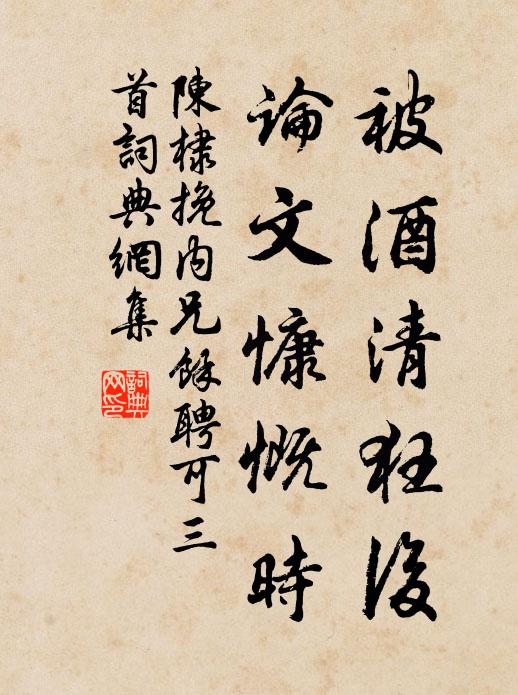 被酒清狂後
論文慷慨時
陳棣挽內兄餘聘可三
首詞典網集
詞典
网印